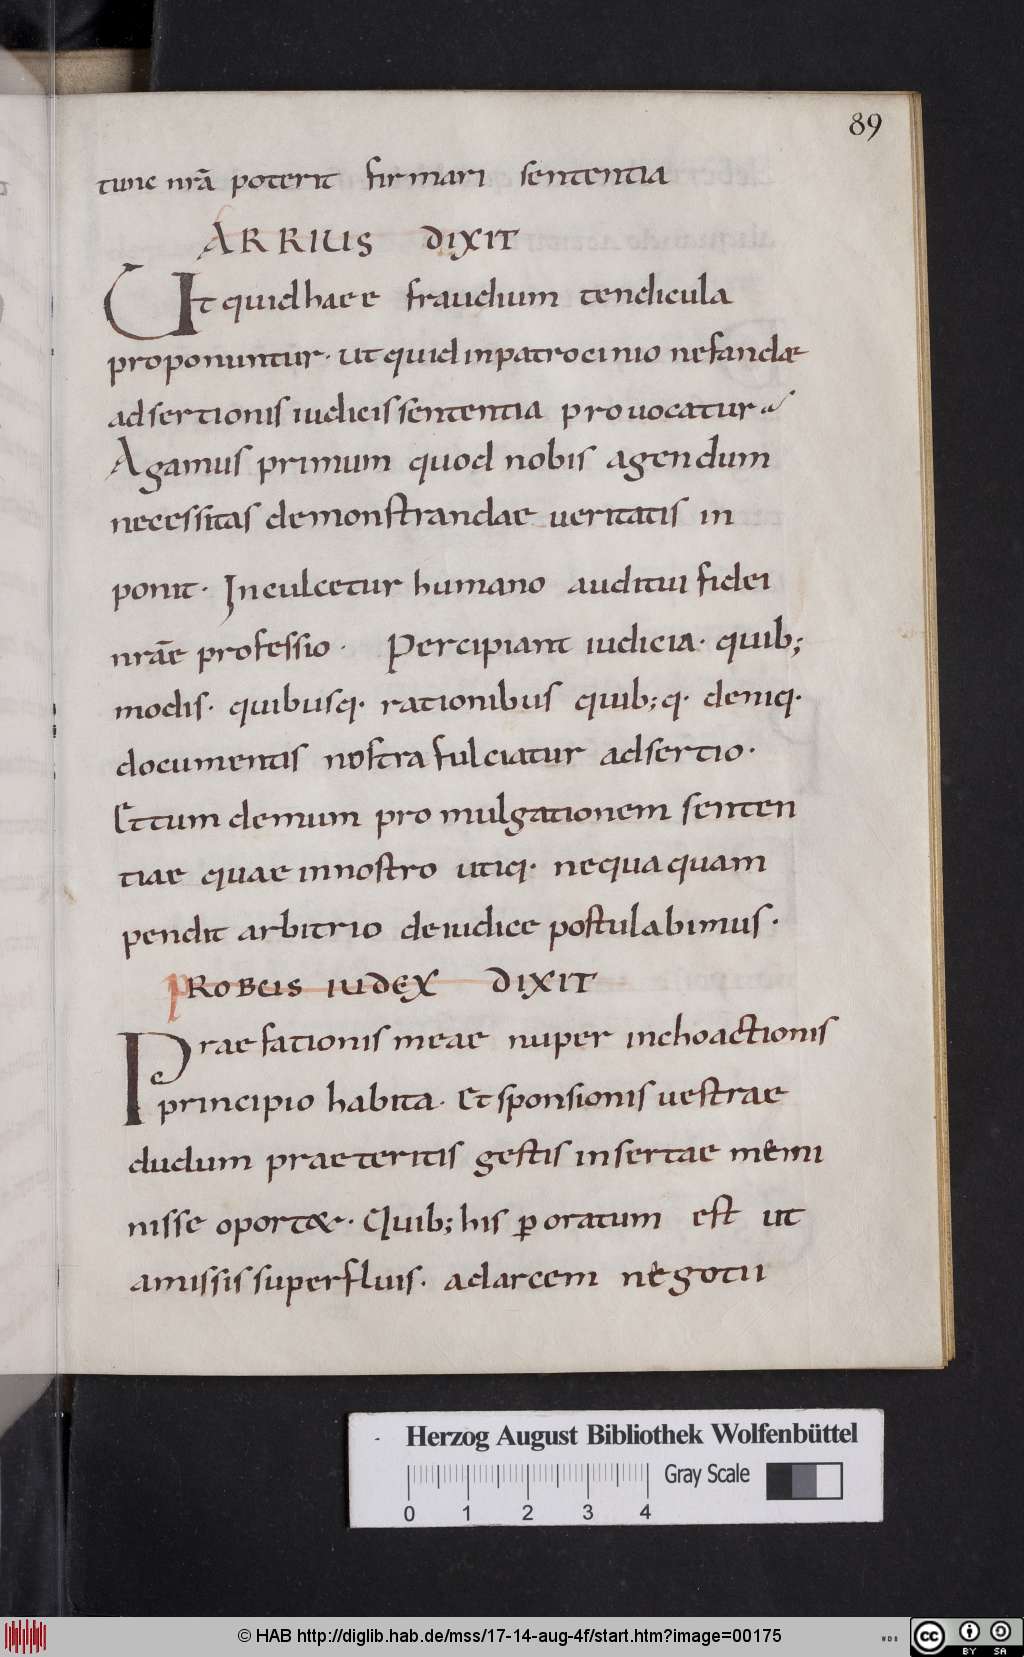 89
tunc nrā poterit firmari sententia
ARRIUS DIXIT
Ut quid haec e fraudium tendicula
proponuntur· ut quid inpatrocinio nefandae
adsertionis iudicis sententia provocatur
Agamus primum quod nobis agendum
necessitas demonstrandae veritatis in
ponit· Inculcetur humano auditui fidei
nrāe professio· Percipiant iudicia· quib;
modis· quibusq· rationibus quib;q· deniq·
documentis nostra fulciatur adsertio·
Et tum demum promulgationem senten
tiae quae innostro utiq· nequaquam
pendit arbitrio deiudice postulabimus·
PROBUS IUDEX DIXIT
Praefationis meae nuper inchoactionis
principio habita· Et sponsionis vestrae
dudum praeteritis gestis insertae memi
nisse oport&· Quib; his ꝑoratum est ut
amissis superfluis· adarcem negotii
Herzog August Bibliothek Wolfenbüttel
Gray Scale
0 1 2 3 4
© HAB http://diglib.hab.de/mss/17-14-aug-4f/start.htm?image=00175
WDB
cc BY SA